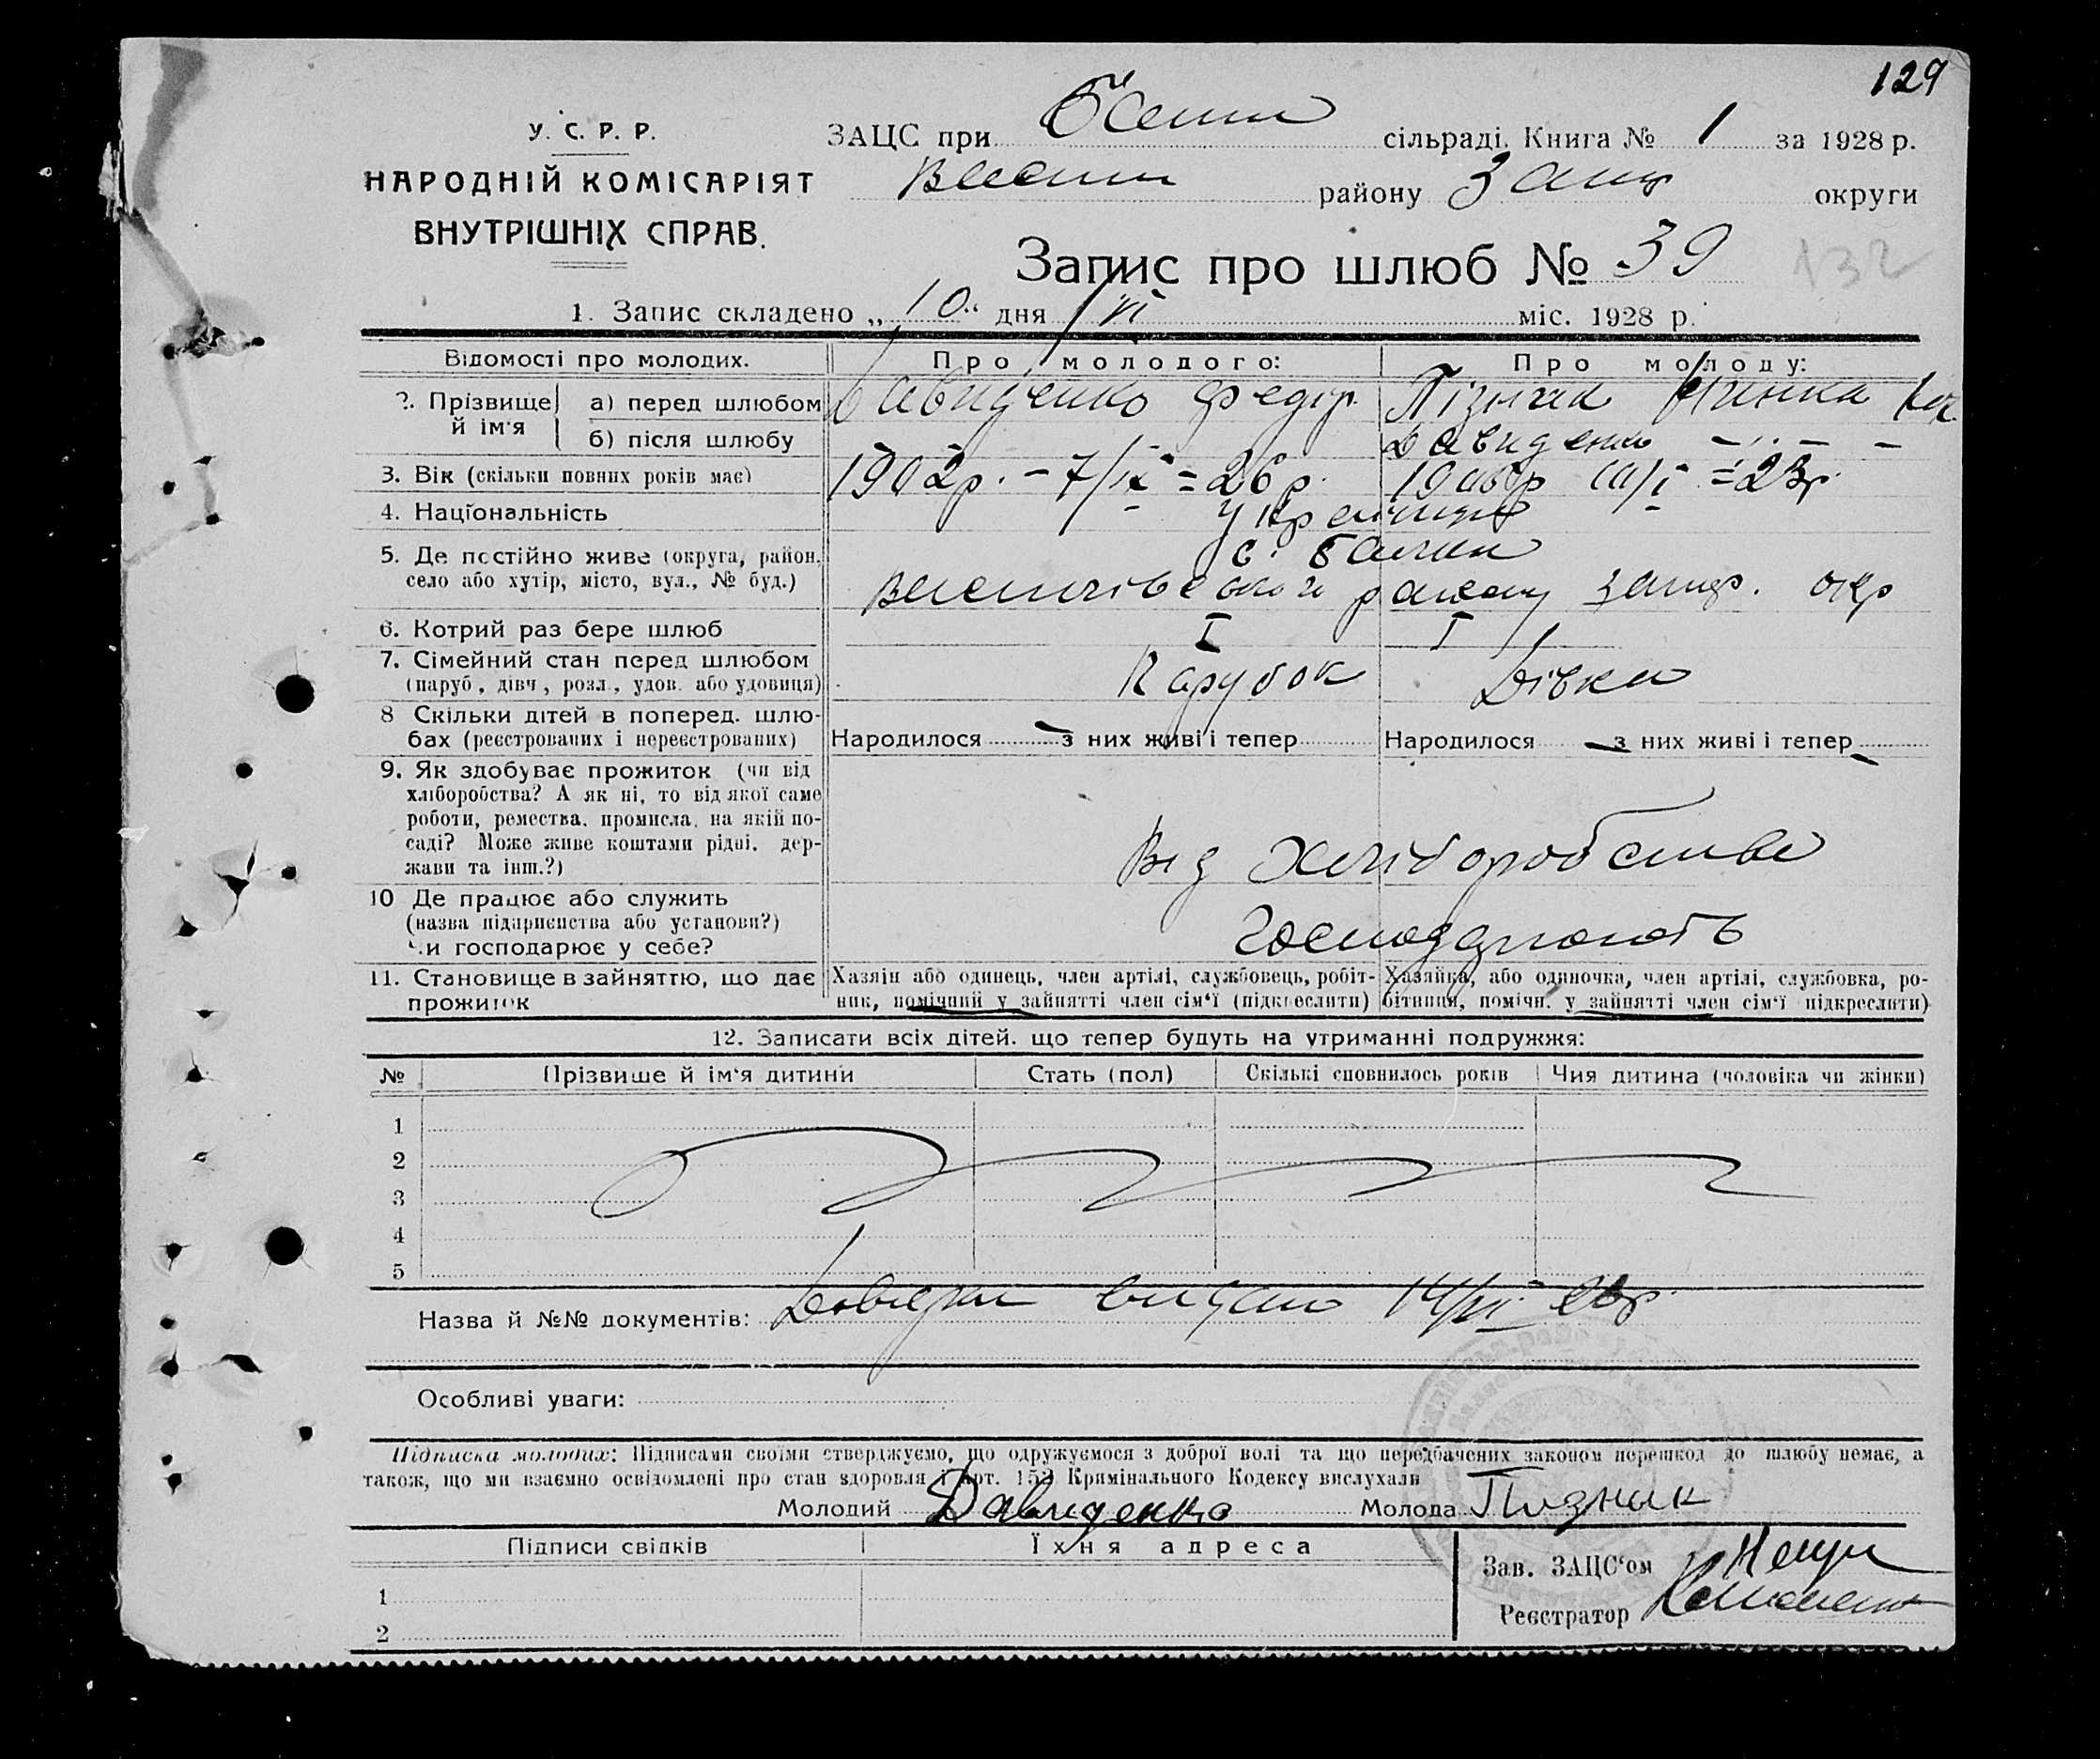 129
У. С. Р. Р.
НАРОДНІЙ КОМІСАРІЯТ
ВНУТРІШНІХ СПРАВ.
ЗАЦС при сільраді. Книга № 1 за 1928 р.
району округи
Запис про шлюб № 39
132
1. Запис складено „10“ дня міс. 1928 р.
Відомості про молодих. Про молодого: Про молоду:
2. Прізвище й ім‘я а) перед шлюбом Давиденко Федір Пізняк
б) після шлюбу Давиденко
3. Вік (скільки повних років має) 1902р. – 7/ІХ = 26 р. = 23р.
4. Національність Українці
5. Де постійно живе (округа, район, село або хутір, місто, вул., № буд.) с. Балки
району Запор. окр
6. Котрий раз бере шлюб І І
7. Сімейний стан перед шлюбом Парубок Дівка
(паруб., дівч., розл., удов. або удовиця)
8 Скільки дітей в поперед. шлю-
бах (реєстрованих і нереєстрованих) Народилося – з них живі і тепер Народилося – з них живі і тепер –
9. Як здобуває прожиток (чи від
хліборобства? А як ні, то від якої саме
роботи, ремества, промисла, на якій по-
саді? Може живе коштами рідні, дер-
жави та інш.?) Від Хліборобства
10 Де працює або служить
(назва підприєнства або установи?)
Чи господарює у себе? Господарюють
11. Становище в зайняттю, що дає
прожиток
Хазяїн або одинець, член артілі, службовець, робіт-
ник, помічний у зайнятті член сім‘ї (підкреслити)
Хазяйка, або одиночка, член артілі, службовка, ро-
бітниця, помічн. у зайнятті член сім‘ї підкреслити)
12. Записати всіх дітей, що тепер будуть на утриманні подружжя:
№ Прізвише й ім‘я дитини Стать (пол) Скількі сповнилось років Чия дитина (чоловіка чи жінки)
1
2
3
4
5
Назва й №№ документів: видано
Особливі уваги:
Підписка молодих: Підписами своїми стверджуємо, що одружуємося з доброї волі та що передбачених законом перешкод до шлюбу немає, а
також, що ми взаємно освідомлені про стан здоровля і арт. 152 Кримінального Кодексу вислухали
Молодий Давиденко Молода Пизнык
Підписи свідків Їхня адреса
1
2
Зав. ЗАЦС‘ом
Реєстратор